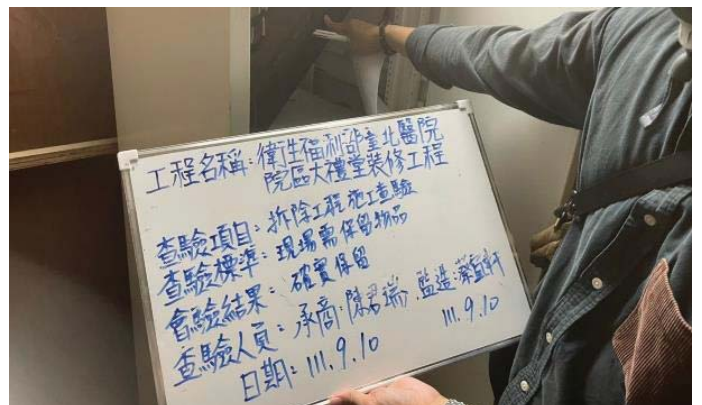 工程名稱:衛生福利部臺北醫院
院區大禮堂裝修工程
查驗項目:拆除工程施工查驗
查驗標準:現場需保留物品
會驗結果:確實保留
查驗人員:承商:陳君瑞、監造:
111.9.10
日期:111.9.10